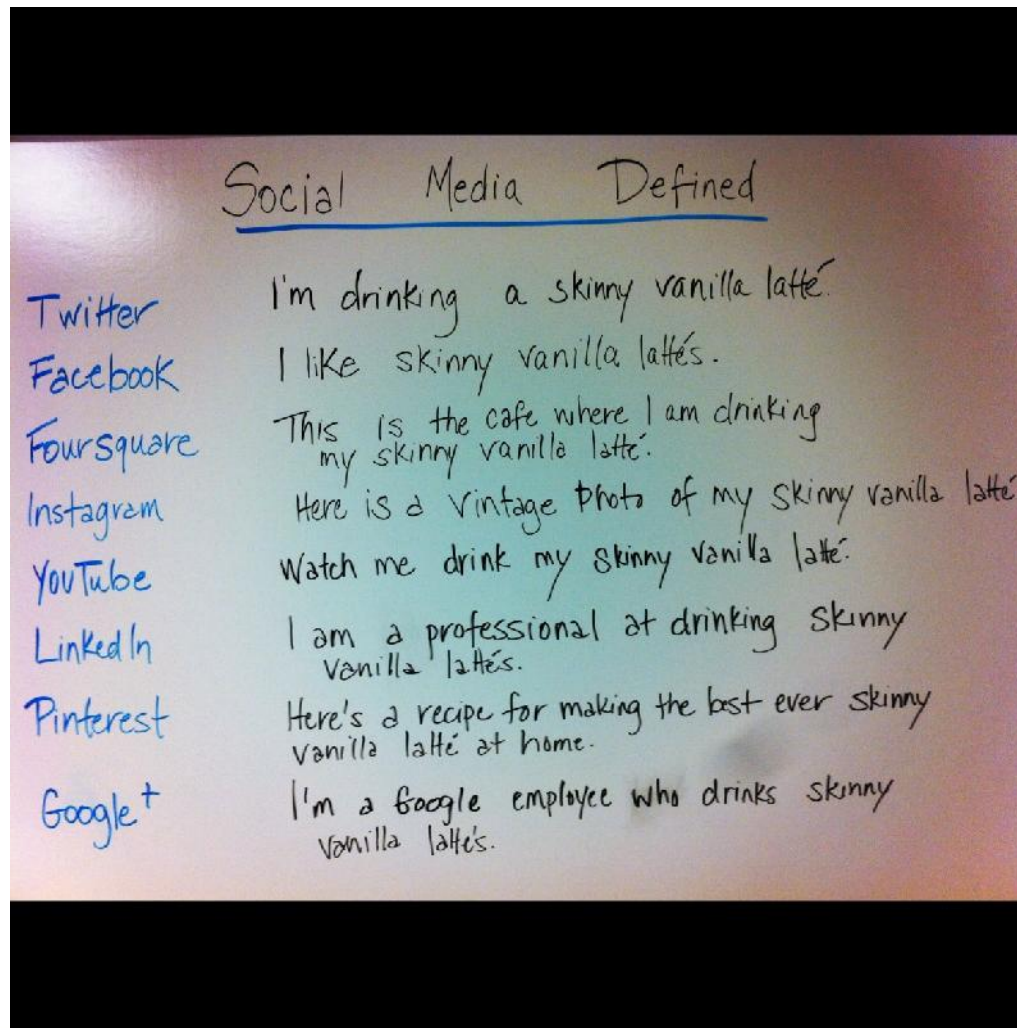 Social Media Defined
Twitter I'm drinking a skinny vanilla latté.
Facebook I like skinny vanilla lattés.
Foursquare This is the cafe where I am drinking
my skinny vanilla latté.
Instagram Here is a vintage photo of my skinny vanilla latté
YouTube Watch me drink my skinny vanilla latté.
LinkedIn I am a professional at drinking skinny
vanilla lattés.
Pinterest Here's a recipe for making the best ever skinny
vanilla latté at home.
Google+ I'm a Google employee who drinks skinny
vanilla lattés.